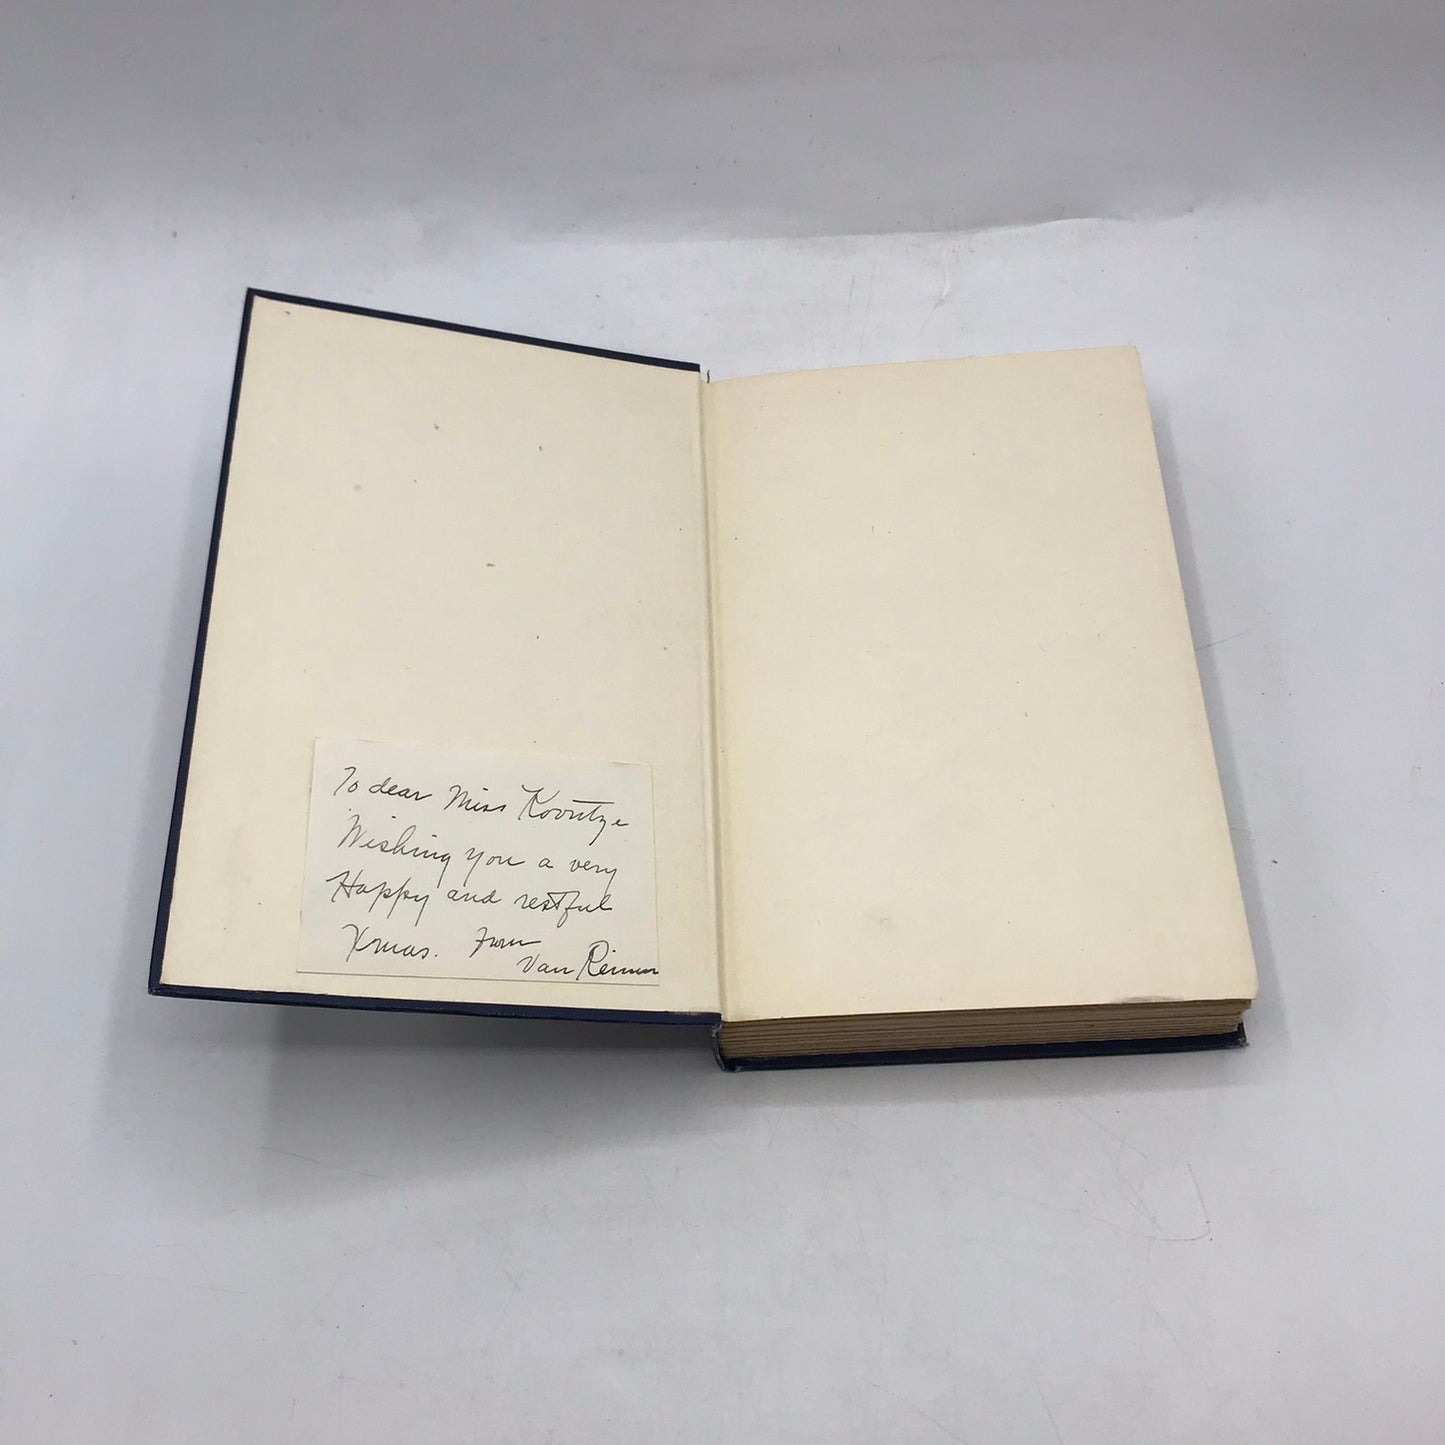 To dear Miss Kovritze
Wishing you a very
Happy and restful
Xmas. From
Van Reimen